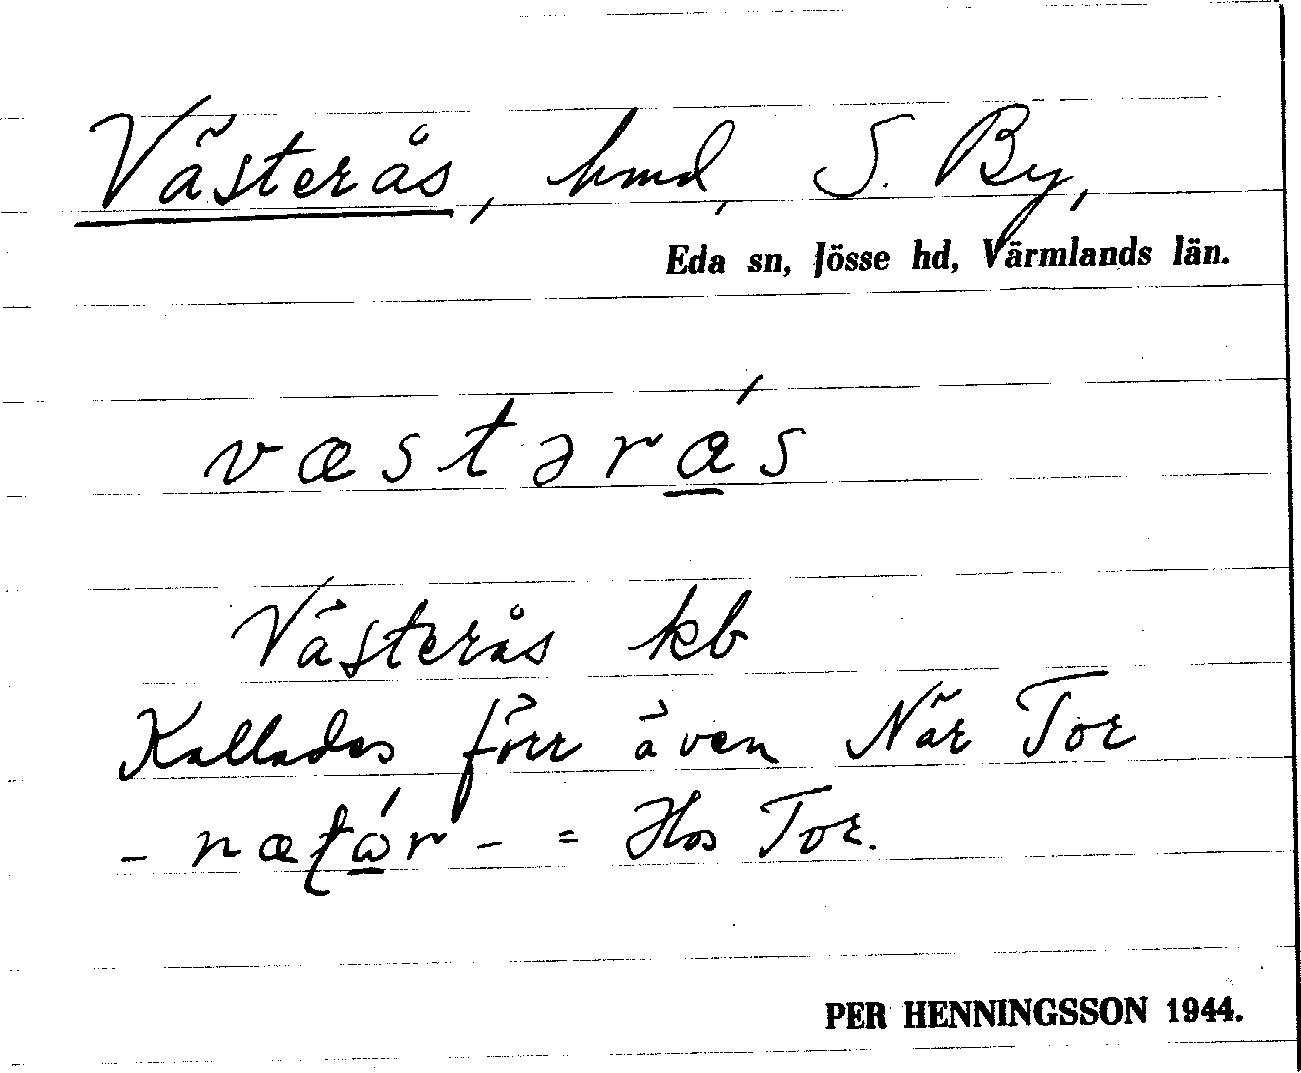 Västerås, hmd, S. By,
Eda sn, Jösse hd, Värmlands län.
væstərǽs
Västerås kb
Kallades förr även När Tor
- næʈώ̲r - = Hos Tor.
PER HENNINGSSON 1944.